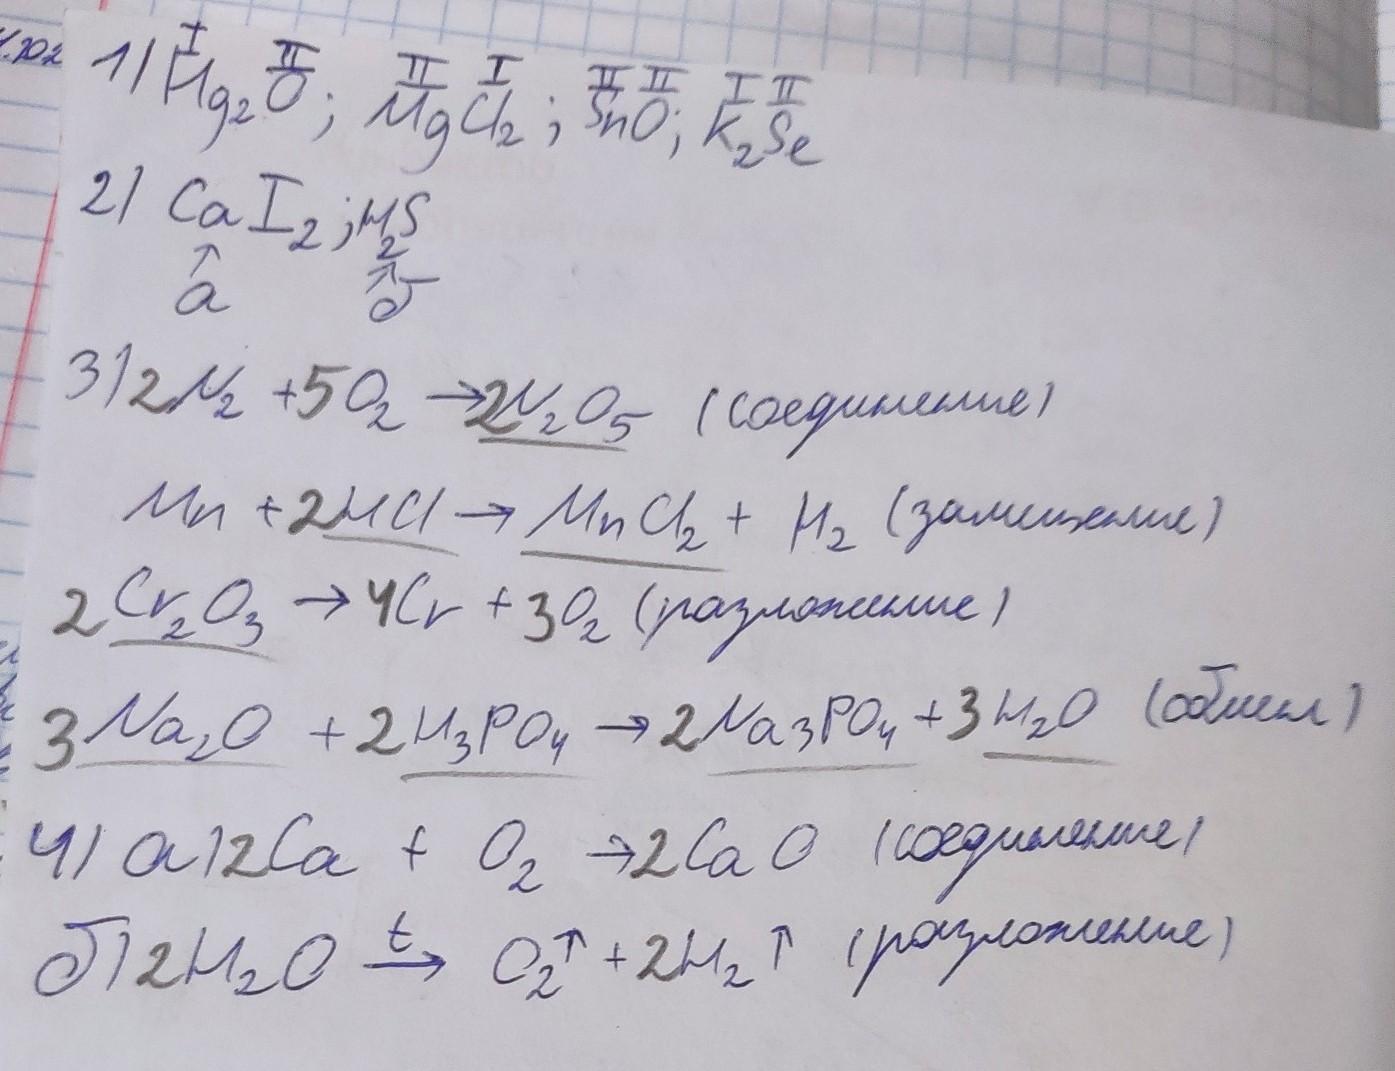 I II II I II II I II
1) Hg₂O; MgCl₂; SnO; K₂Se
2) CaI₂; H₂S
↑ ↑
а б
3) 2N₂ + 5O₂ → 2N₂O₅ (соединение)
Mn + 2HCl → MnCl₂ + H₂ (замещение)
2Cr₂O₃ → 4Cr + 3O₂ (разложение)
3Na₂O + 2H₃PO₄ → 2Na₃PO₄ + 3H₂O (обмен)
4) а) 2Ca + O₂ → 2CaO (соединение)
t
б) 2H₂O → O₂↑ + 2H₂↑ (разложение)